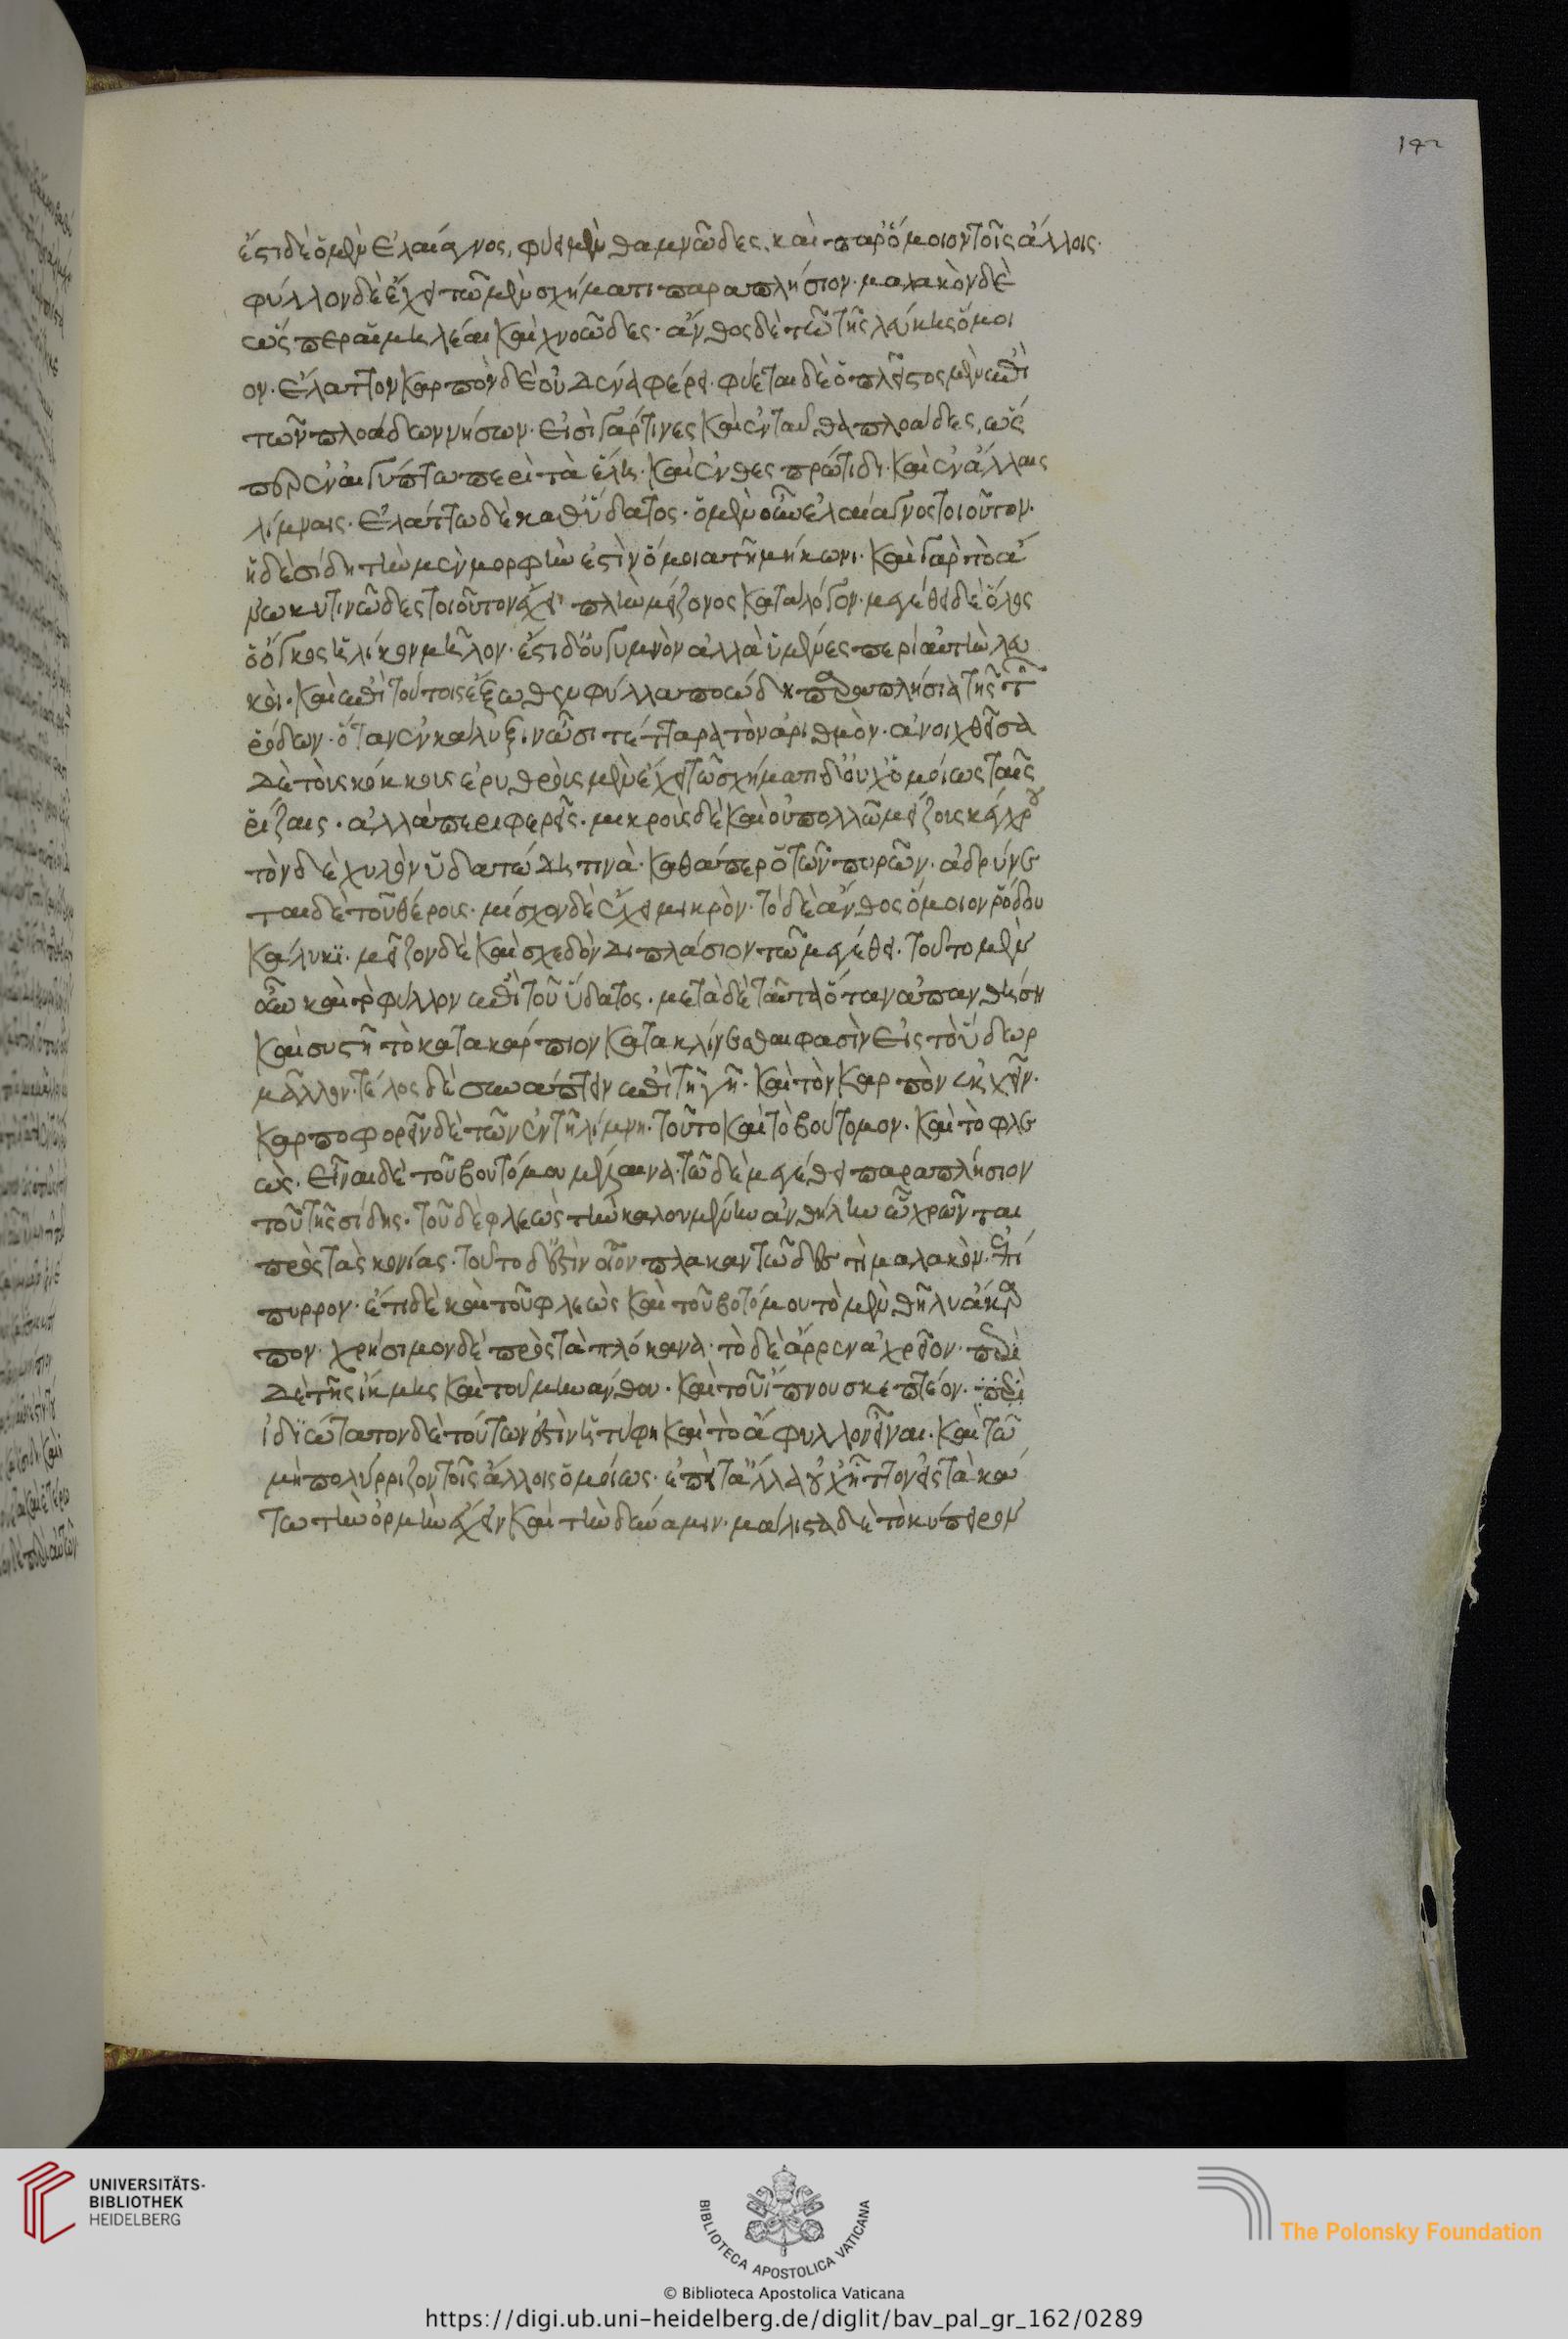 142
ἔστι δὲ ὁ μὲν ἐλαίαγνος, φύσει μὲν θαμνῶδες. καὶ παρόμοιον τοῖς ἄλλοις.
φύλλον δὲ ἔχει τῶ μὲν σχήματι παραπλήσιον. μαλακὸν δὲ
ὥσπερ αἱ μηλέαι καὶ χνοῶδες. ἄνθος δὲ τῶ τῆς λεύκης ὅμοι
ον. ἔλαττον καρπὸν δὲ οὐδένα φέρει. φύεται δὲ ὁ πλεῖστος μὲν ἐπὶ
τῶν πλοάδων νήσων. εἰσὶ γάρ τινες καὶ ἐνταῦθα πλοάδες, ὥσ
περ ἐν αἰγύπτω περὶ τὰ ἕλη. καὶ ἐν θεσπρώτιδι. καὶ ἐν ἄλλαις
λίμναις. ἐλάττω δὲ καθ' ὕδατος. ὁ μὲν οὖν ἐλαίαγνος τοιοῦτον.
ἡ δὲ σίδη τὴν μὲν μορφὴν ἐστὶν ὁμοία τῆ μήκωνι. καὶ γὰρ τὸ ἄ
νω κυτινῶδες τοιοῦτον ἔχει πλὴν μείζονος κατὰ λόγον. μεγέθει δὲ ὅλος
ὁ ὄγκος ἡλίκον μῆλον. ἔστι δ' οὐ γυμνὸν ἀλλὰ ὑμένες περὶ αὐτὴν λευ
κοί. καὶ ἐπὶ τούτοις ἔξωθεν φύλλα ποώδη παραπλήσια τῆς τῶν
ῥόδων. ὅταν ἐν κάλυξιν ὦσι τέτταρα τὸν ἀριθμὸν. ἀνοιχθεῖσα
δὲ τοὺς κόκκους ἐρυθροὺς μὲν ἔχει τῶ σχήματι δ' οὐχ ὁμοίως ταῖς
ῥίζαις. ἀλλὰ περιφερεῖς. μικροὺς δὲ καὶ οὐ πολλῶ μείζους κέγχρου
τὸν δὲ χυλὸν ὑδατώδη τινὰ. καθάπερ ὁ τῶν πυρῶν. ἁδρύνε
ται δὲ τοῦ θέρους. μίσχον δὲ ἔχει μικρὸν. τὸ δὲ ἄνθος ὅμοιον ῥόδου
κάλυκι. μεῖζον δὲ καὶ σχεδὸν διπλάσιον τῶ μεγέθει. τοῦτο μὲν
οὖν καὶ τὸ φύλλον ἐπὶ τοῦ ὕδατος. μετὰ δὲ ταῦτα ὅταν ἀπανθήση
καὶ συστῆ τὸ κατακάρπιον κατακλίνεσθαι φασὶν εἰς τὸ ὕδωρ
μᾶλλον. τέλος δὲ συνάπτειν ἐπὶ τῆ γῆ. καὶ τὸν καρπὸν ἐκχεῖν.
καρποφορεῖν δὲ τῶν ἐν τῆ λίμνη. τοῦτο καὶ τὸ βούτομον. καὶ τὸ φλε
ὼς. εἶναι δὲ τοῦ βουτόμου μέλαινα. τῶ δὲ μεγέθει παραπλήσιον
τοῦ τῆς σίδης. τοῦ δὲ φλεὼς τὴν καλουμένην ἀνθήλην ὧ χρῶνται
πρὸς τὰς κονίας. τοῦτο δ' ἐστὶν οἷον πλακουντῶδές τι μαλακὸν. ἐπί
πυρρον. ἔτι δὲ καὶ τοῦ φλεὼς καὶ τοῦ βοτόμου τὸ μὲν θῆλυ ἄκαρ
πον. χρήσιμον δὲ πρὸς τὰ πλόκανα. τὸ δὲ ἄρρεν ἀχρεῖον. περὶ
δὲ τῆς ἰκμῆς καὶ τοῦ μηνανθου. καὶ τοῦ ἴπνου σκεπτέον. περὶ
ἰδιώτατον δὲ τούτων ἐστὶν ἡ τύφη καὶ τὸ ἄφυλλον εἶναι. καὶ τῶ
μὴ πολύρριζον τοῖς ἄλλοις ὁμοίως. ἐπεὶ τἄλλα οὐχ ἧττον εἰς τὰ κά
τω τὴν ὁρμὴν ἔχειν καὶ τὴν δύναμιν. μάλιστα δὲ τὸ κύπειρον
UNIVERSITÄTS-
BIBLIOTHEK
HEIDELBERG
BIBLIOTECA APOSTOLICA VATICANA
The Polonsky Foundation
© Biblioteca Apostolica Vaticana
https://digi.ub.uni-heidelberg.de/diglit/bav_pal_gr_162/0289